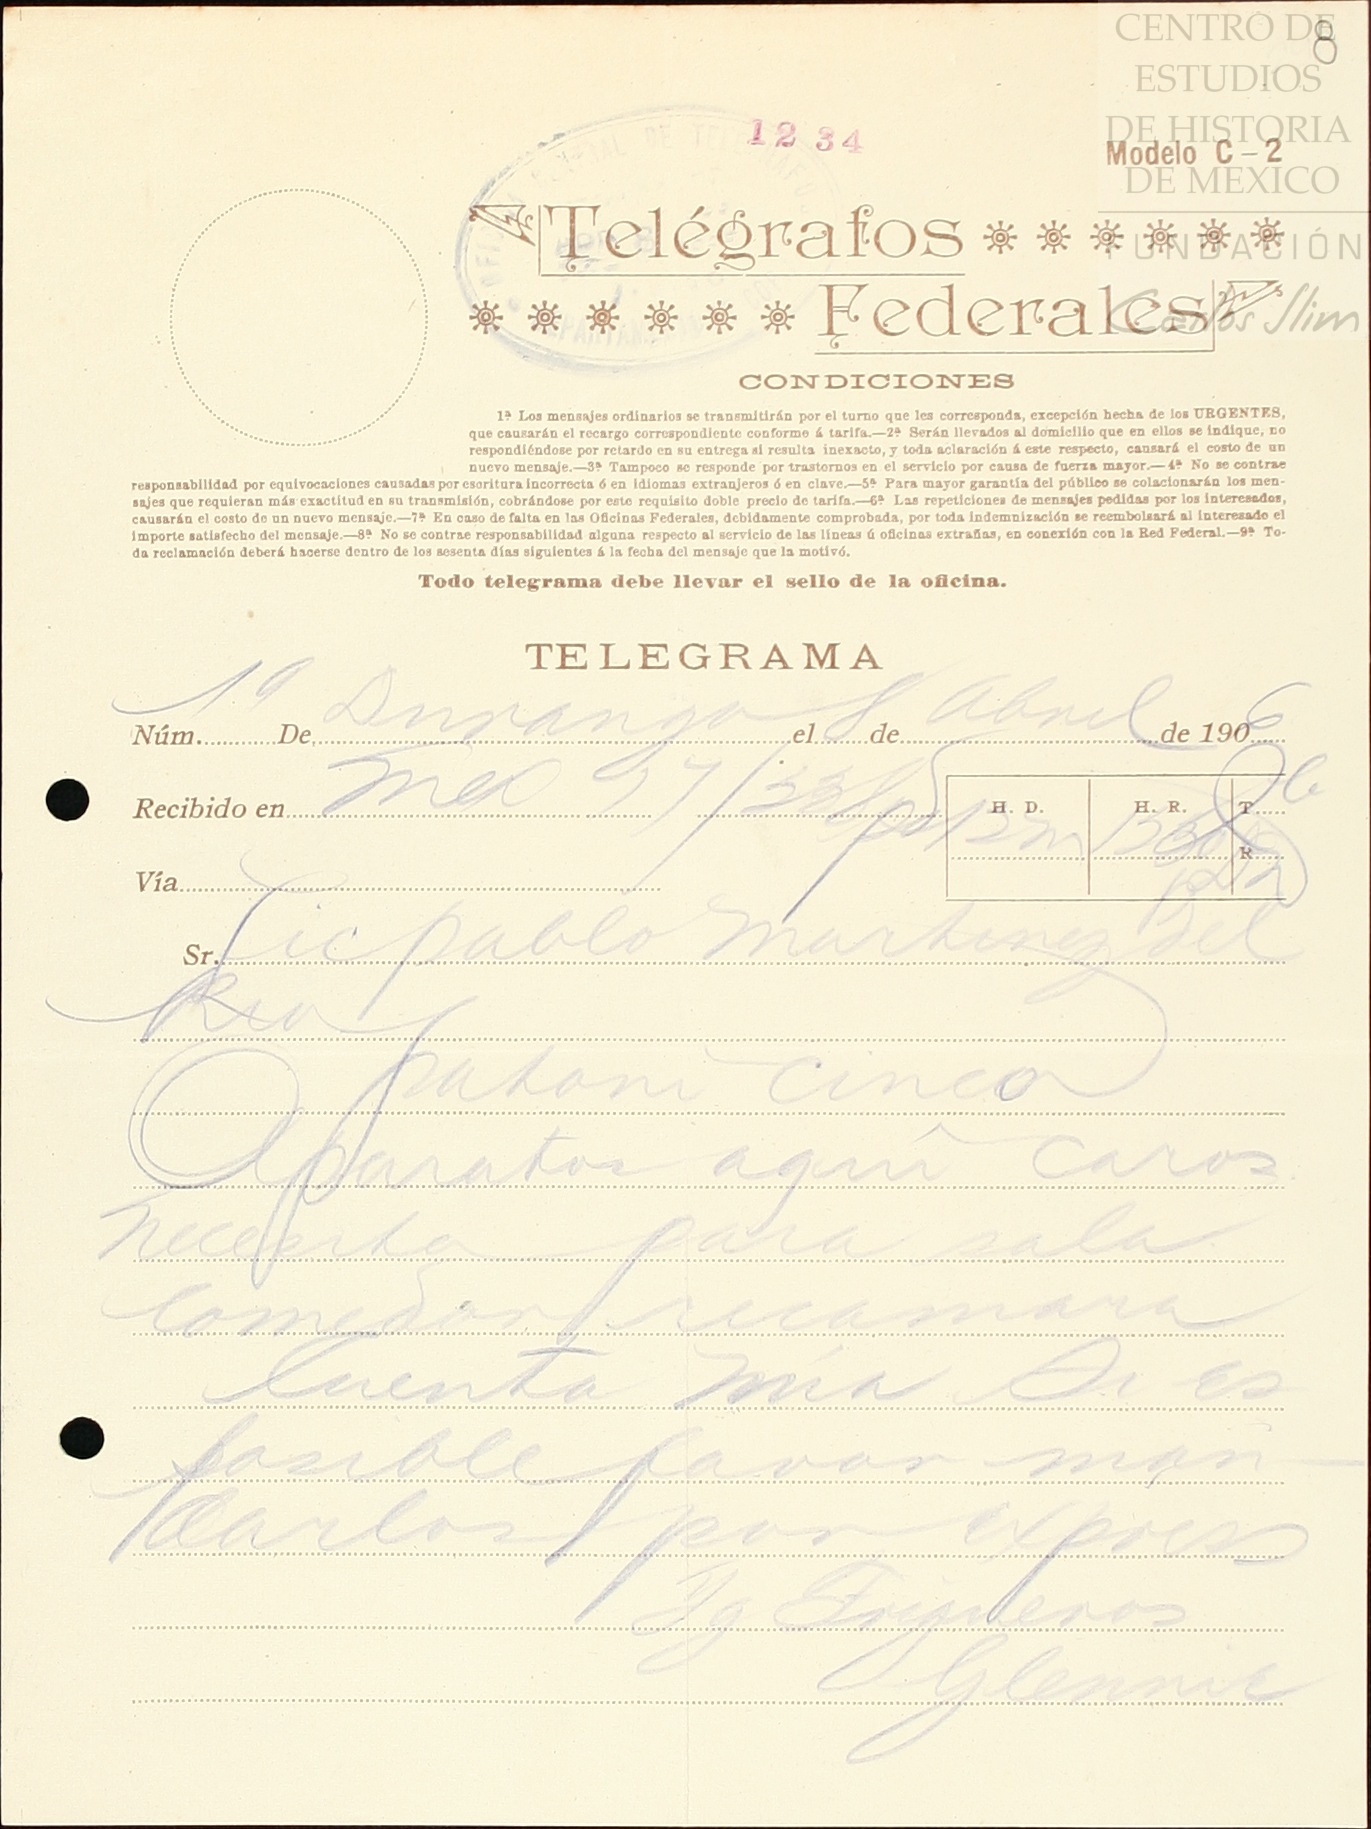 CENTRO DE
ESTUDIOS
DE HISTORIA
DE MEXICO
FUNDACIÓN
Carlos Slim
8
1234
Modelo C-2
Telégrafos
Federales
CONDICIONES
1ª Los mensajes ordinarios se transmitirán por el turno que les corresponda, excepción hecha de los URGENTES,
que causarán el recargo correspondiente conforme á tarifa.—2ª Serán llevados al domicilio que en ellos se indique, no
respondiéndose por retardo en su entrega si resulta inexacto, y toda aclaración á este respecto, causará el costo de un
nuevo mensaje.—3ª Tampoco se responde por trastornos en el servicio por causa de fuerza mayor.—4ª No se contrae
responsabilidad por equivocaciones causadas por escritura incorrecta ó en idiomas extranjeros ó en clave.—5ª Para mayor garantía del público se colacionarán los men-
sajes que requieran más exactitud en su transmisión, cobrándose por este requisito doble precio de tarifa.—6ª Las repeticiones de mensajes pedidas por los interesados,
causarán el costo de un nuevo mensaje.—7ª En caso de falta en las Oficinas Federales, debidamente comprobada, por toda indemnización se reembolsará al interesado el
importe satisfecho del mensaje.—8ª No se contrae responsabilidad alguna respecto al servicio de las líneas ú oficinas extrañas, en conexión con la Red Federal.—9ª To-
da reclamación deberá hacerse dentro de los sesenta días siguientes á la fecha del mensaje que la motivó.
Todo telegrama debe llevar el sello de la oficina.
TELEGRAMA
Núm. 19 De Durango el 8 de Abril de 1906
Recibido en Mex H. D. H. R. T.
R
Vía
Sr. Lic pablo Martinez del
Rio
patoni cinco
Aparatos aquí caros
necesito para sala
comedor recamara
Cuenta mía Si es
posible favor man-
darlos por express
Yg Trigueros
Glennie